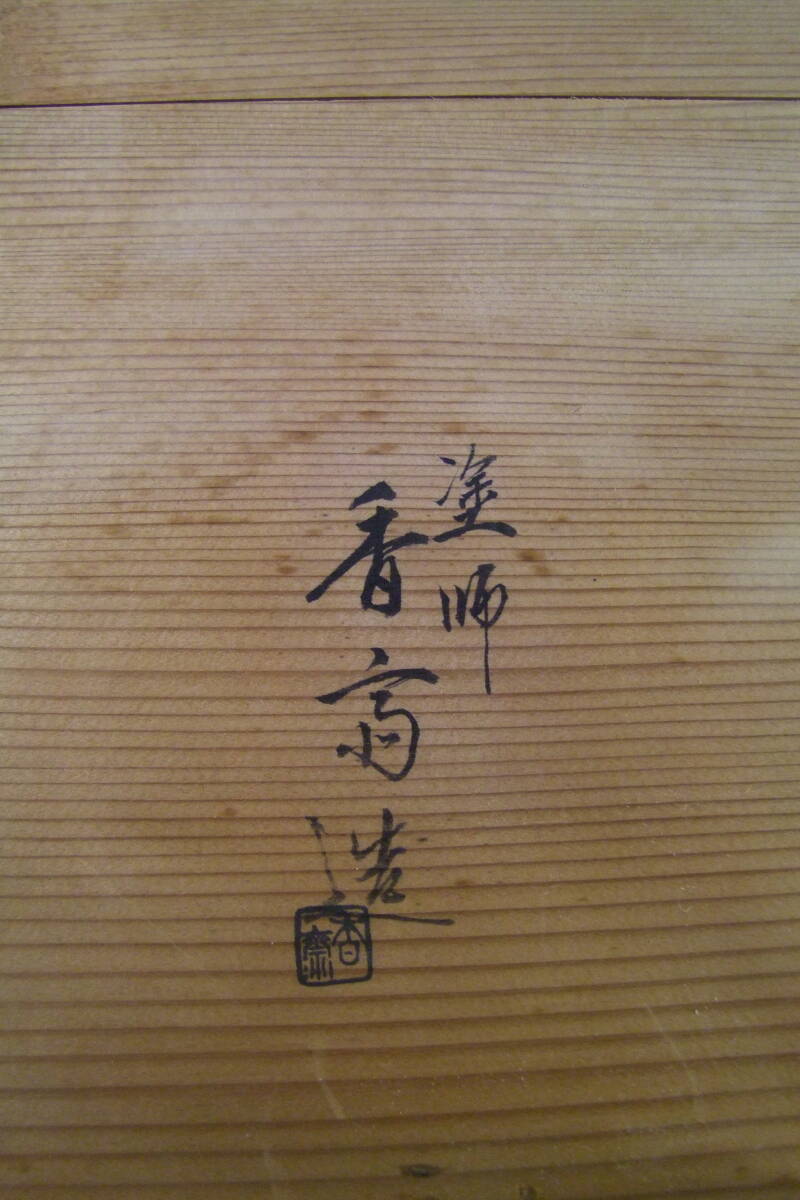 塗師
香斎造
香斎